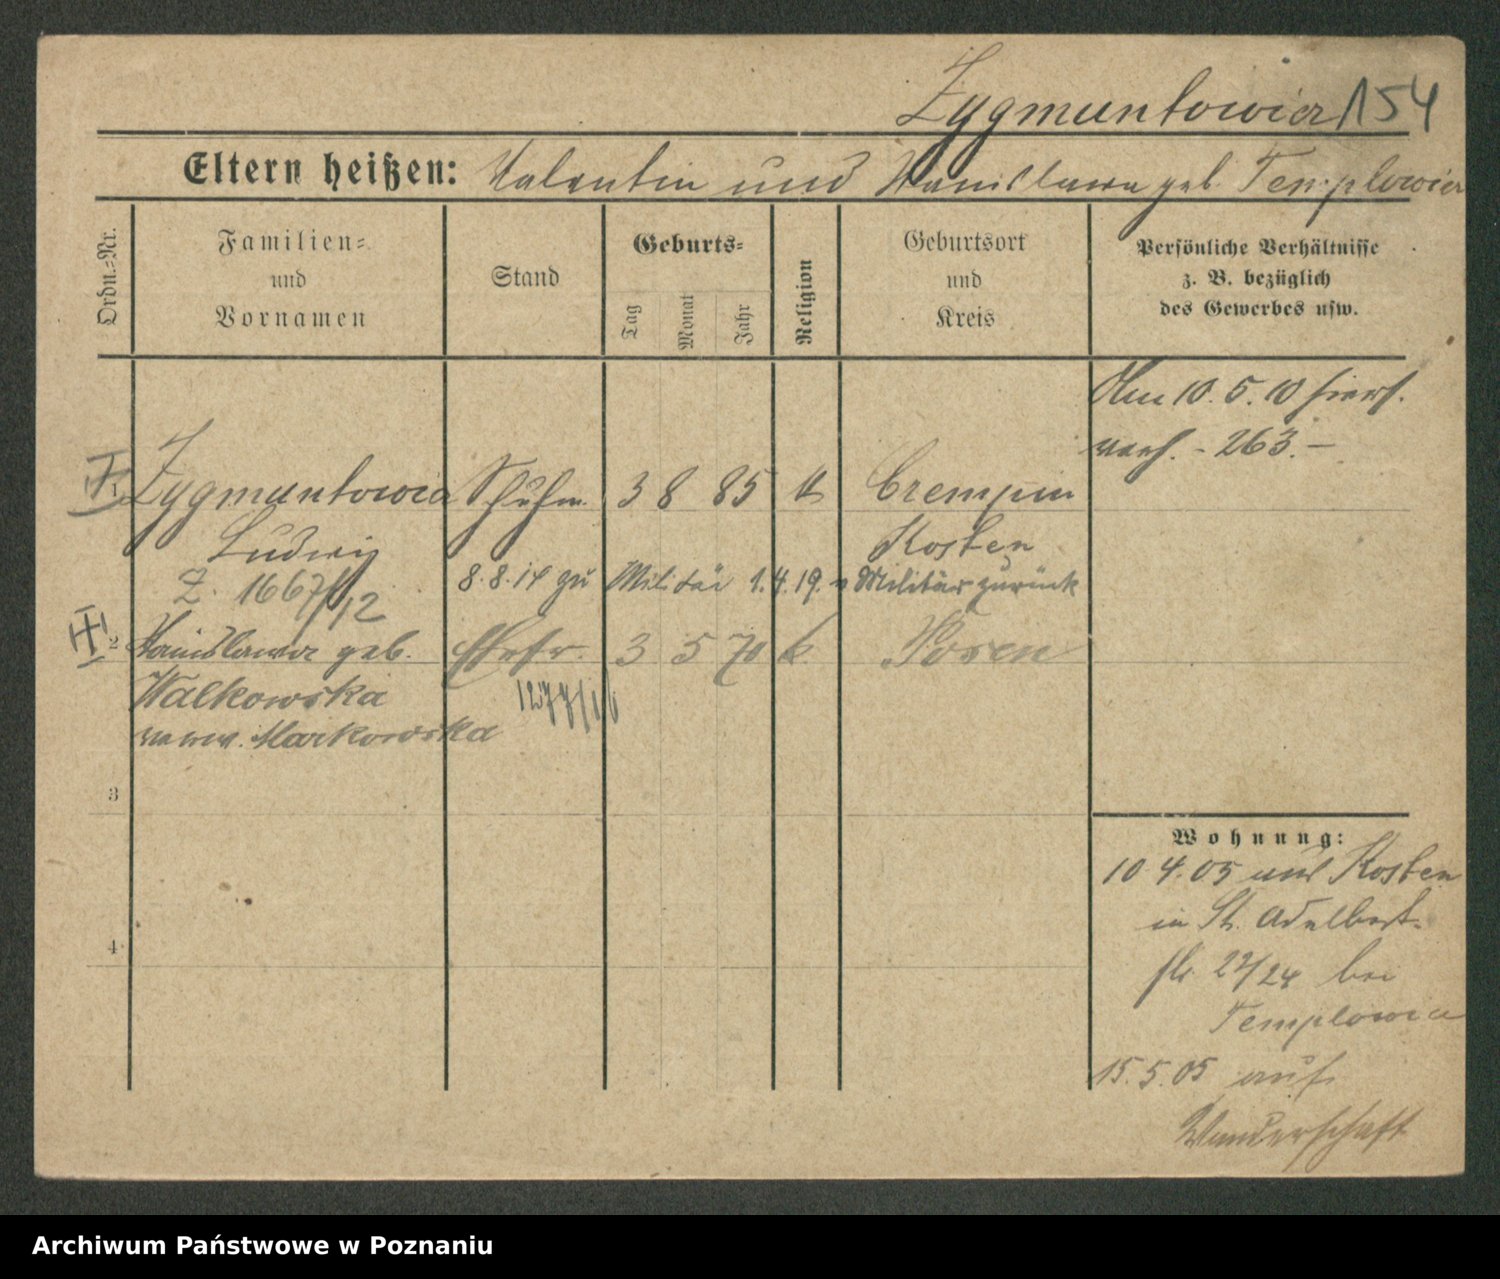 Zygmuntowicz 154
Eltern heißen: Valentin und Stanislawa geb. Templowicz
Ordn.-Nr.
Familien-
und
Vornamen
Stand
Geburts-
Tag
Monat
Jahr
Religion
Geburtsort
und
Kreis
Persönliche Verhältnisse
z. B. bezüglich
des Gewerbes usw.
Am 10. 5. 10 hiers.
verh. - 263. -
Zygmuntowicz Schuhm. 3 8 85 k Crempin
Ludwig Kosten
Z. 1667/12 8.8.14 zu Militär 1.4.19. v Militär zurück
2 Stanislawa geb. Ehefr. 3 5 70 k Posen
Walkowska 1277/16
verw. Markowska
3
4
Wohnung:
10 4. 05 aus Kosten
in St. Adalbert-
str 23/24 bei
Templowicz
15. 5. 05 auf
Wanderschaft
Archiwum Państwowe w Poznaniu